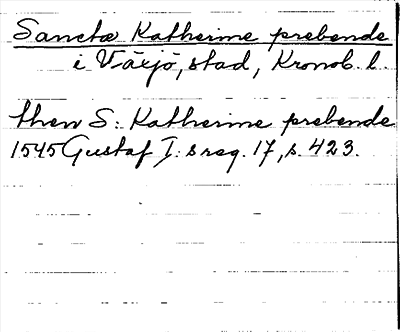 Sancta Katherine prebende
i Växjö, stad, Kronob. l.
then S: Katherine prebende
1545 Gustaf I:s reg. 17, s. 423.